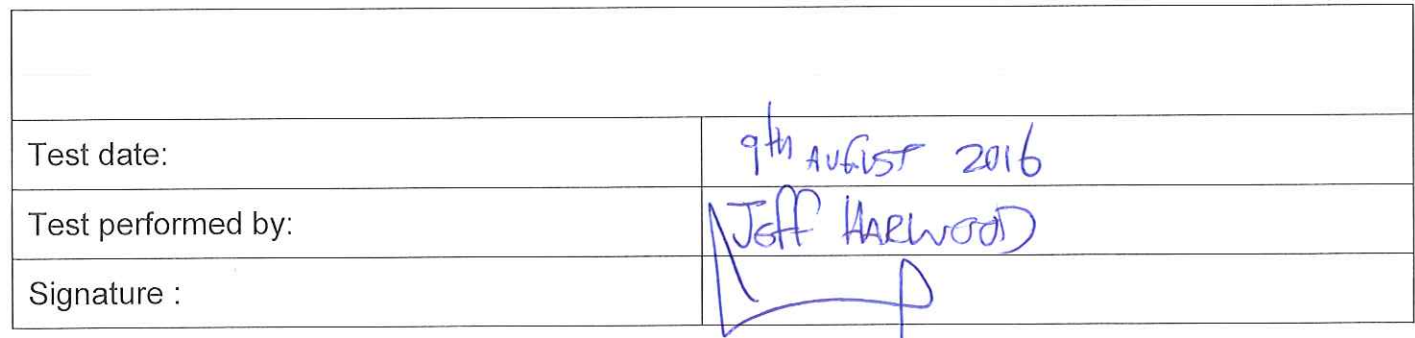 Test date: 9th AUGUST 2016
Test performed by: JEFF HARWOOD
Signature :